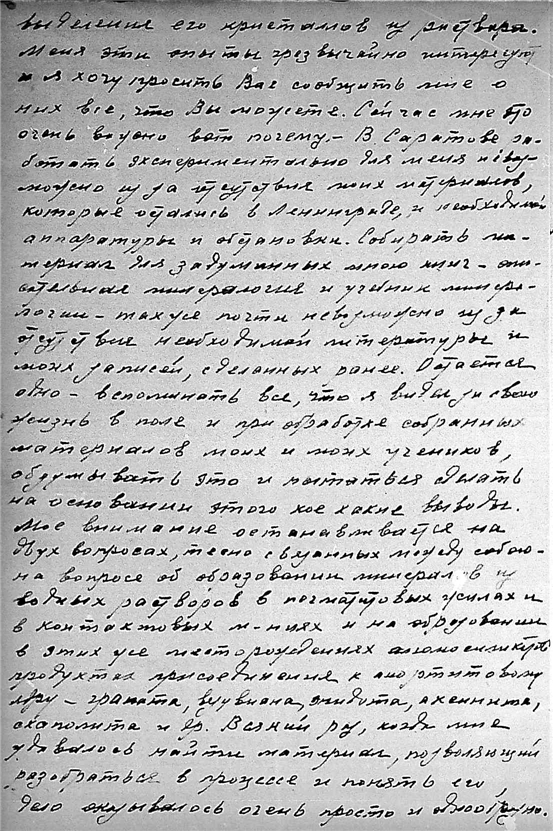 выделения его кристаллов из раствора.
Меня эти опыты чрезвычайно интересуют
и я хочу просить Вас сообщить мне о
них все, что Вы можете. Сейчас мне это
очень важно вот почему. – В Саратове ра-
ботать экспериментально для меня невоз-
можно из за отсутствия моих материалов,
которые остались в Ленинграде, и необходимой
аппаратуры и обстановки. Собирать ма-
териал для задуманных мною книг – опи-
сательная минералогия и учебник минера-
логии – также почти невозможно из за
отсутствие необходимой литературы и
моих записей, сделанных ранее. Остается
одно – вспоминать все, что я видел за свою
жизнь в поле и при обработке собранных
материалов моих и моих учеников,
обдумывать это и пытаться сделать
на основании этого кое какие выводы.
Мое внимание останавливается на
двух вопросах, тесно связанных между собою –
на вопросе об образовании минералов из
водных растворов в пегматитовых жилах и
в контактовых м-ниях и на образовании
в этих же месторождениях алюмосиликатов
продуктах присоединения к анортитовому
ядру – граната, везувиана, эпидота, аксинита,
скаполита и др. Всякий раз, когда мне
удавалось найти материал, позволяющий
разобраться в процессе и понять его
дело оказывалось очень просто и однообразно.